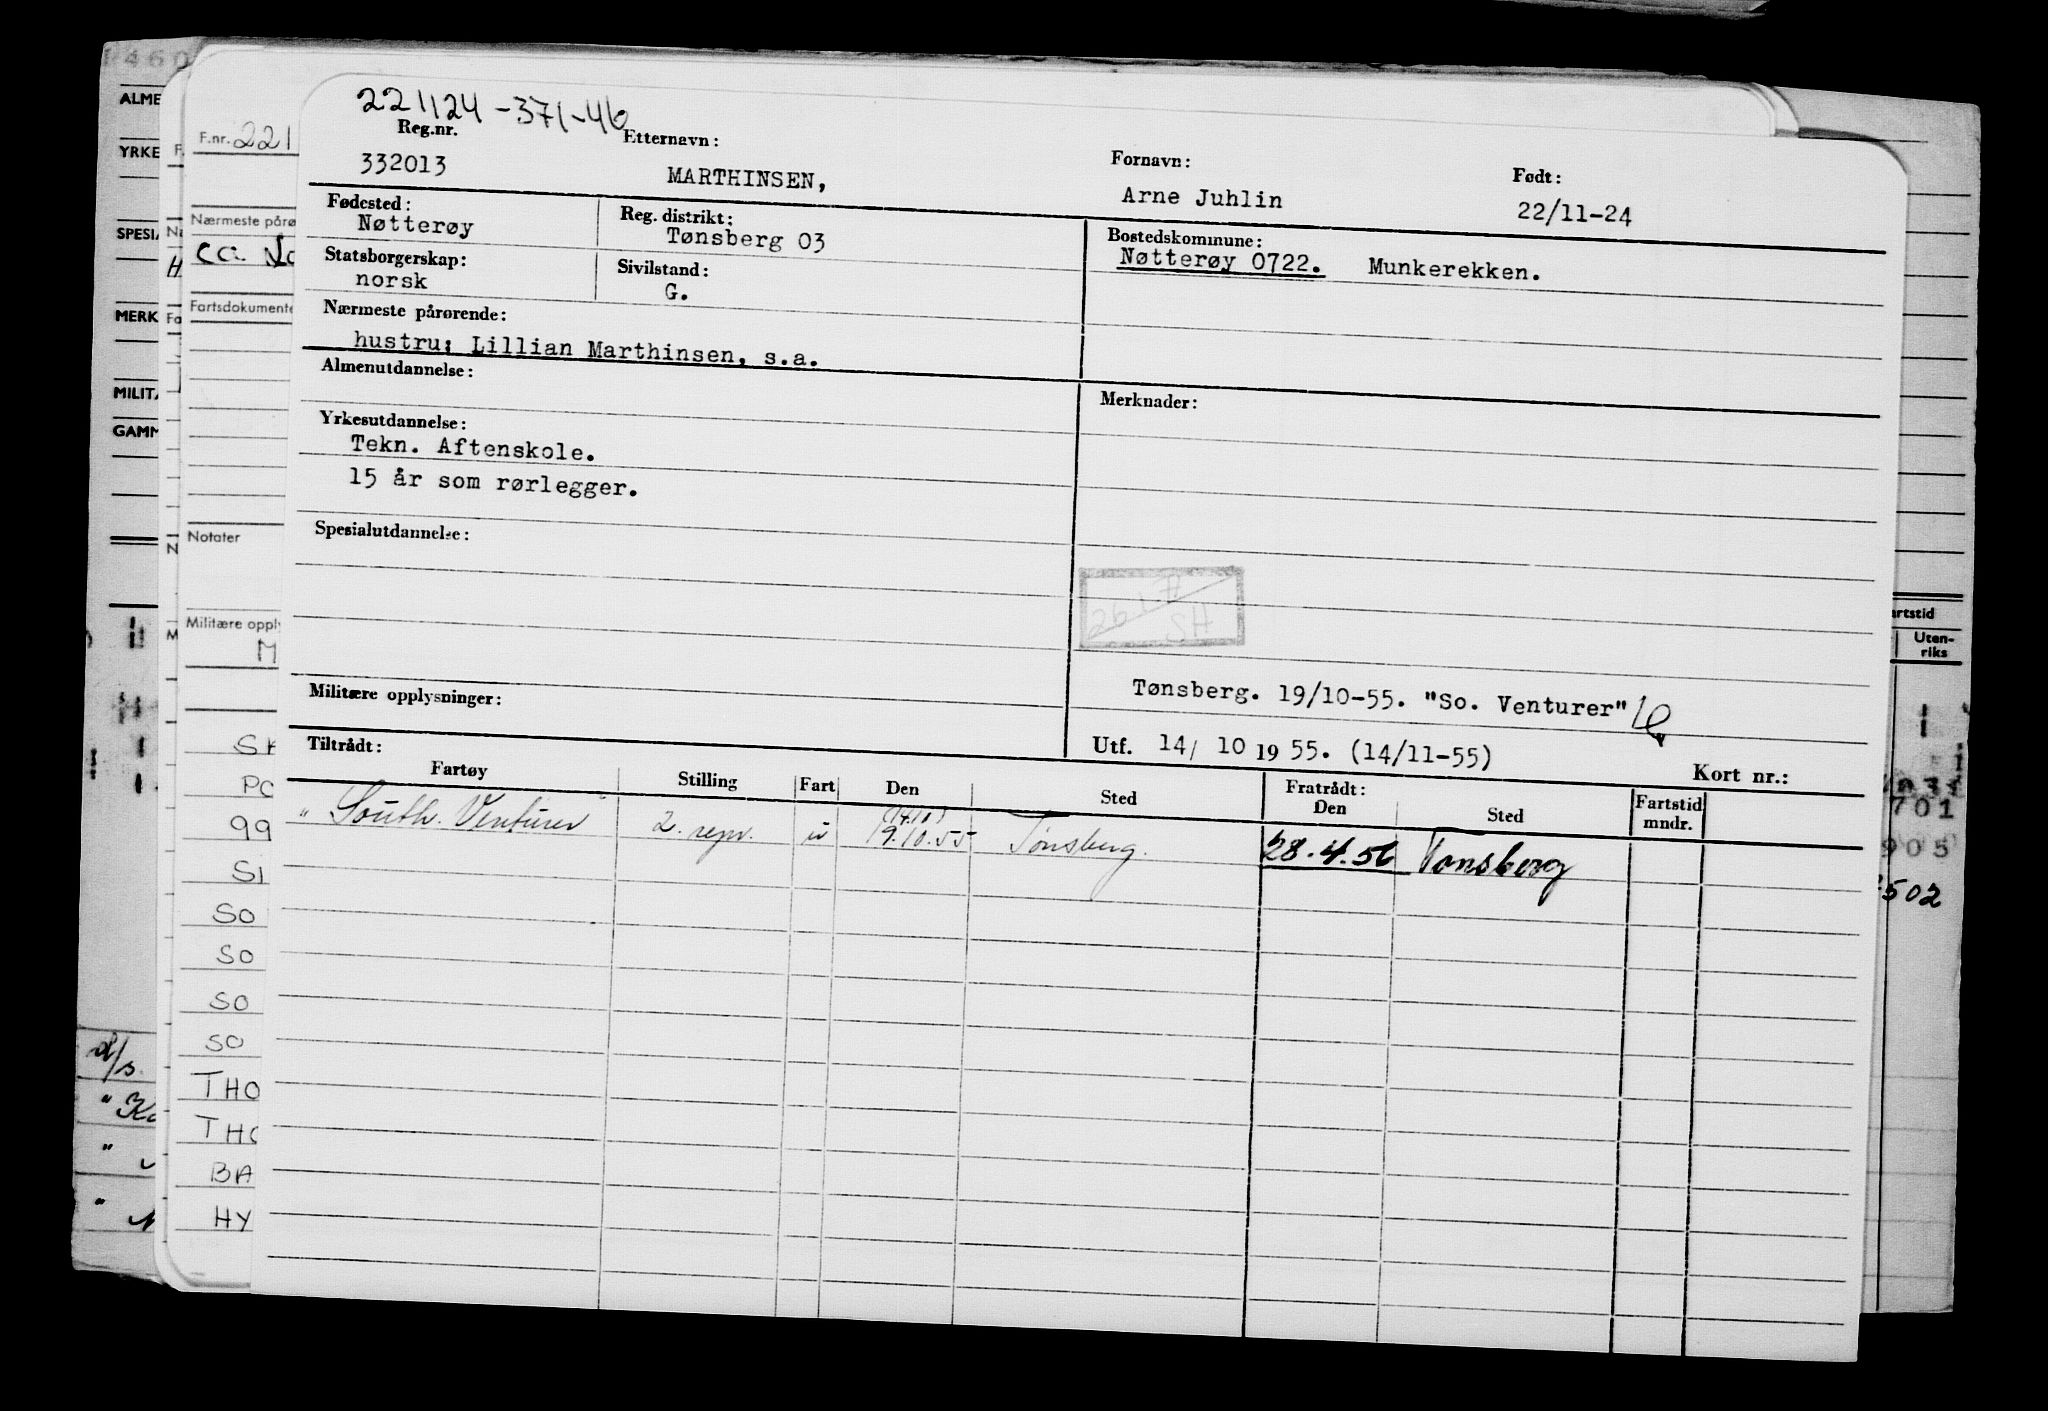 221124-371-46
Reg.nr. Etternavn: Fornavn: Født:
332013 MARTHINSEN, Arne Juhlin 22/11-24
Fødested: Reg. distrikt: Bostedskommune:
Nøtterøy Tønsberg 03 Nøtterøy 0722. Munkerekken.
Statsborgerskap: Sivilstand:
norsk G.
Nærmeste pårørende:
hustru; Lillian Marthinsen, s.a.
Almenutdannelse: Merknader:
Yrkesutdannelse:
Tekn. Aftenskole.
15 år som rørlegger.
Spesialutdannelse:
SH
Militære opplysninger: Tønsberg. 19/10-55. "So. Venturer"
Tiltrådt: Utf. 14/ 10 19 55. (14/11-55) Kort nr.:
Fartøy Stilling Fart Den Sted Fratrådt: Den Sted Fartstid mndr.
(14.10)
"South. Venturer" 2. repr. u 19.10.55 Tønsberg. 28.4.56 Tønsberg
F.nr. 221
Nærmeste pårø
Fartsdokumente
Notater
Militære oppl
M
SK
PO
99
SI
SO
SO
SO
SO
THO
THO
BA
HY
ALME
YRKE
SPESIA
MERK
MILITA
GAMM
d/s.
artstid
Uten-
riks
701
905
502